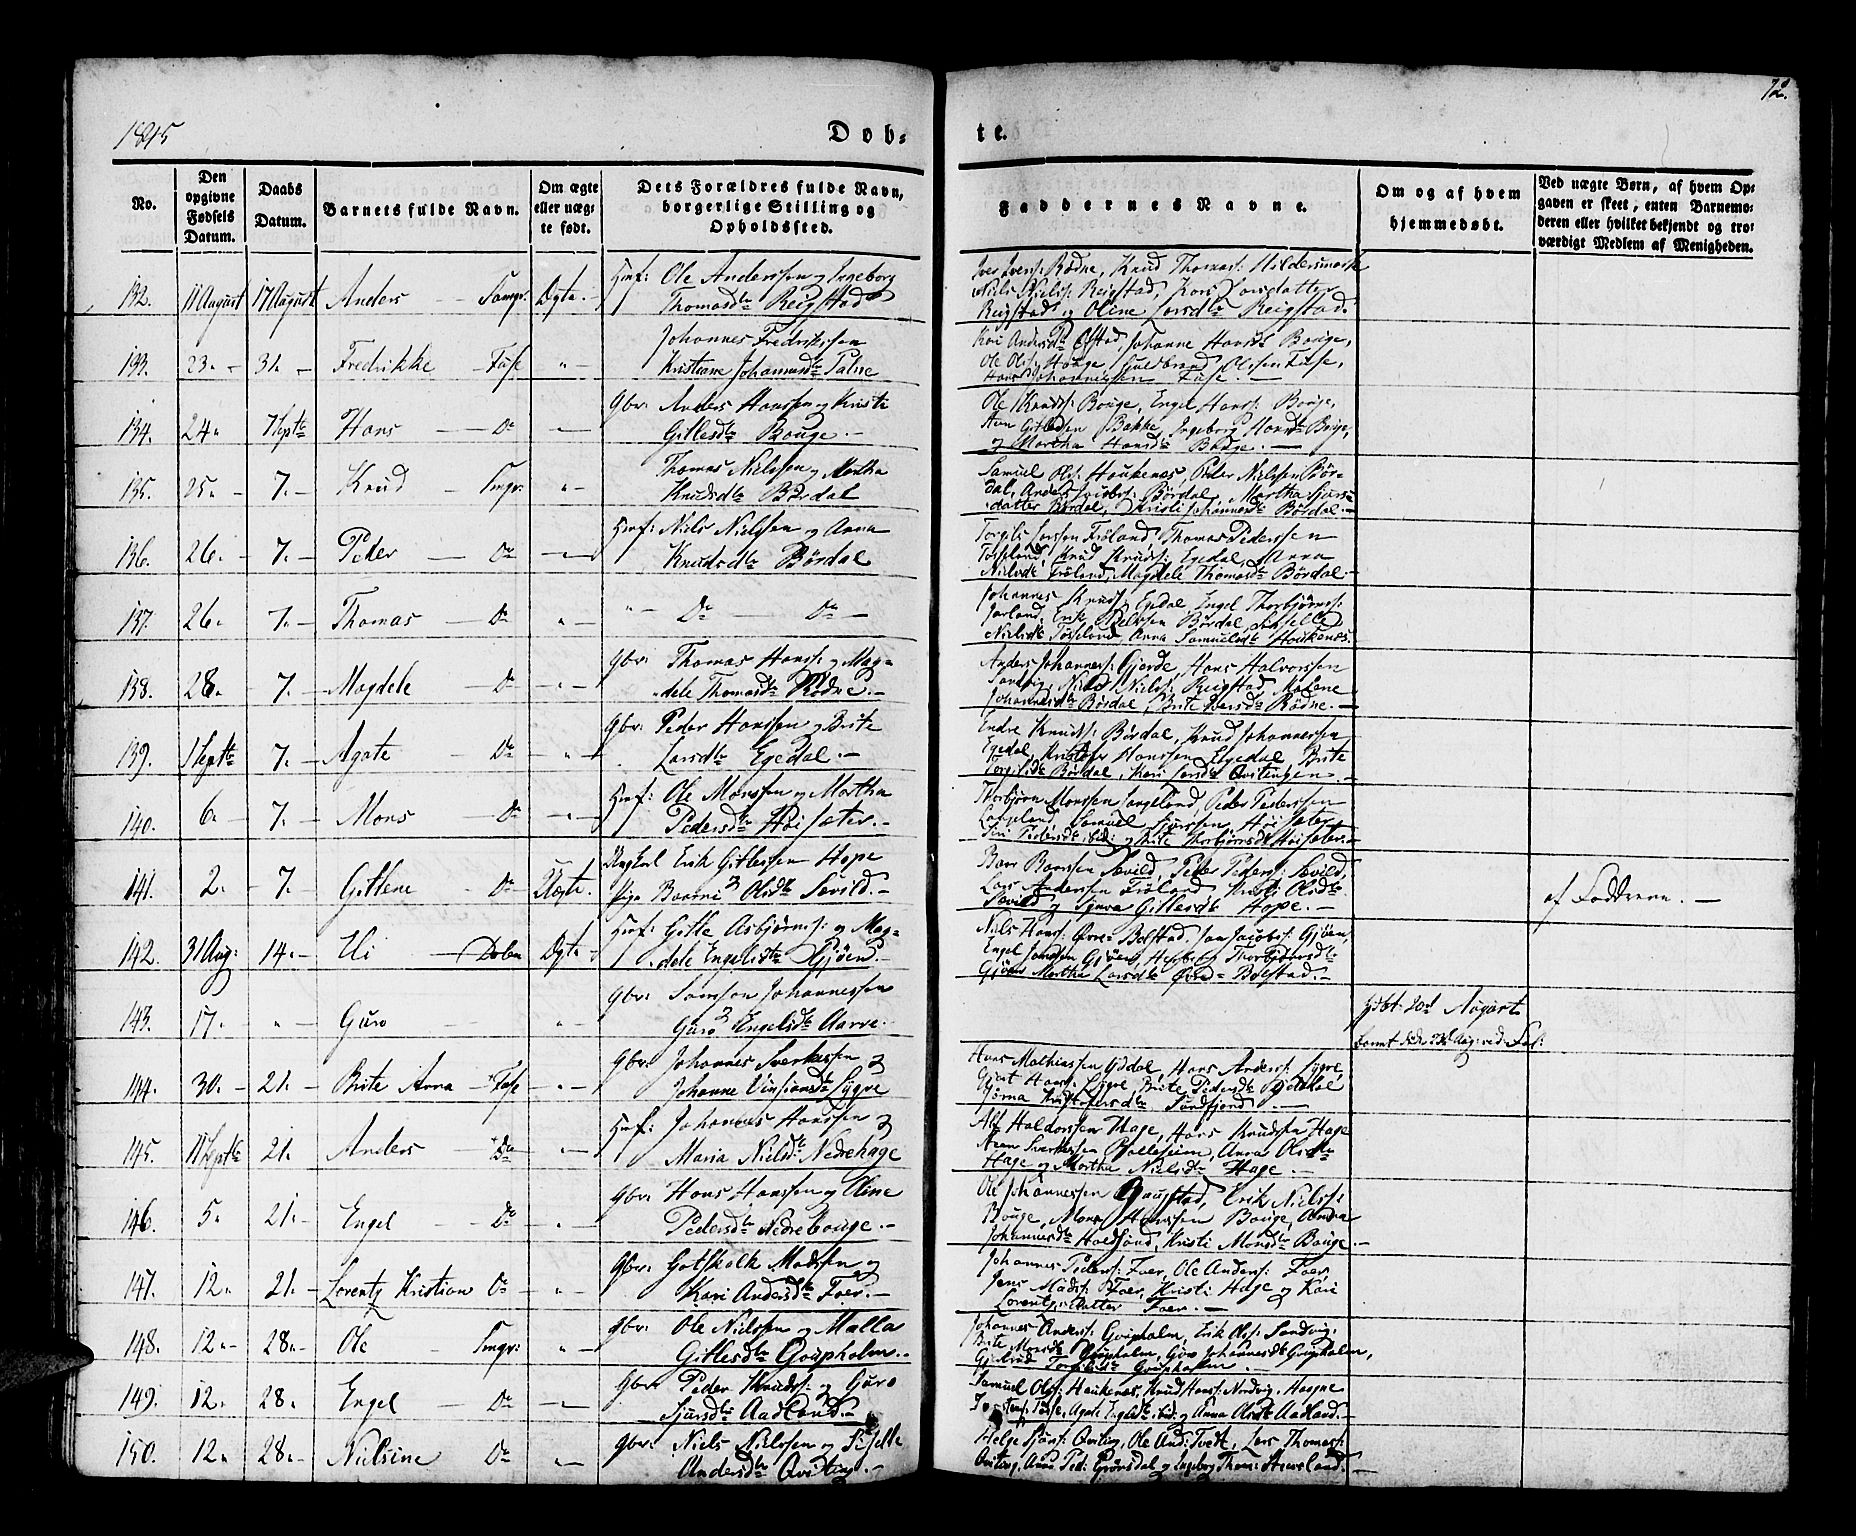 72.
1845
Døb-
te.
No.
Den opgivne Fødsels Datum.
Daabs Datum.
Barnets fulde Navn.
Om ægte eller uægte født.
Dets Forældres fulde Navn, borgerlige Stilling og Opholdssted.
Faddernes Navne.
Om og af hvem hjemmedøbt.
Ved uægte Børn, af hvem Opgaven er skeet, enten Barnemoderen eller hvilket bekjendt og troværdigt Medlem af Menigheden.
132. 11 August 17 August Anders Ægte. Ole Anderssen og Ingeborg
Thomasdtr Reigstad
Iver Iverss: Rødne, Knud Thomass: Hildersmark
Niels Nielss: Reigstad, Kari Larsdatter
Reigstad og Oline Larsdtr Reigstad.
133. 23. - 31. - Fredrikke - Fuse " Johannes Fredrikssen
Kristiane Johannesdtr Palne
Kari Andersdtr Ølstad, Johanne Hansdtr Bouge,
Ole Olss: Houge, Guldbrand Olssen Fuse,
Hans Johannessen Fuse. -
134. 24. 7 Septr Hans - Do - Gbr: Anders Hanssen og Kristi
Gitlesdtr Bouge. -
Ole Knudss: Bouge, Engel Hanss: Bouge,
Bakke, Ingeborg Hansdtr Bouge,
og Martha Hansdtr Bouge. -
135. 25. - 7. - Knud - " Thomas Nielssen og Martha
Knudsdtr Bördal
Samuel Olss: Haukenes, Peder Nielssen Bör-
dal, Anders Bördal, Martha Sjurs-
datter Bördal, Kristi Johannesdtr Bördal. -
136. 26. - 7. - Peder - Do - Niels Nielssen og Anna
Knudsdtr Bördal
Torgils Larssen Fröland Thomas Pederssen
Töseland, Knud Knudss: Egedal, Anna
Nielsdtr Fröland, Magdele Thomasdtr Bördal. -
137. 26. 7. - Thomas - Do " " - Do - Do -
Johannes Knudss: Egedal, Engel Thorbjørnss:
Jarland, Erik Nielssen Bördal, Siselle
Nielsdtr Töseland, Anna Samuelsdtr Haukenes.
138. 28. - 7. - Magdele Do - Gbr: Thomas Hanss: og Mag-
dele Thomasdtr Rødne. -
Anders Johanness: Gjerde, Hans Halvorssen
Sandvig, Niels Nielss: Reigstad, Malene
Johannesdtr Bördal, Brite Larsdtr Rødne. -
139. 1 Septr 7. - Agate - Do " Gbr: Peder Hanssen og Brite
Larsdtr Egedal. -
Endre Knudss: Bördal, Knud Johannessen
Egedal, Kristofer Hanssen Egedal, Brite
Torgilsdtr Bördal, Kari Larsdtr Qvitingen -
140. 6. - 7. - Mons Do - Ole Monssen og Martha
Pedersdtr Höisæter. -
Thorbjörn Monssen Langeland, Peder Pederssen
Langeland, Samuel Sjurssen Höisæter
Siri Pedersdtr ibid og Brite Thorbjörnsdtr Höisæter. -
141. 2. - 7. - Gitlene - Do Uægte. Ungkarl Erik Gitlessen Hope
Pige Olsdtr Sævild. -
Baar Baarssen Sævild, Peder Pederss: Sævild,
Lars Anderssen Fröland, Kristi Olsdtr
Sævild og Gitlesdtr Hope. -
af Faddrene. -
142. 31 Aug: 14. - Ægte - Gitle Asbjörnss: og Mag-
dele Engelsdtr Gjöen. -
Niels Hanss: Øvre-Bolstad. Jan Jacobss: Gjöen,
Engel Janssen Gjöen, Thorbjörnsdtr
Gjöen Martha Larsdtr Øvre-Bolstad. -
143. 17. - " - Guro - " Gbr: Samson Johannessen
Guro Engelsdtr Aarre. -
20d August
144. 30. - 21. - Brite Anna - Fuse - Gbr: Johannes Sverkessen og
Johanne Vinsiensdtr Lygre
Hans Mathiassen Gödal, Hans Anderss: Lygre,
Gjert Hanss: Lygre, Brite Pedersdtr
Kristofersdtr Sundfjord. -
145. 11 Septr 21. Anders - Do - Johannes Hanssen og
Maria Nielsdtr Nedrehage
Alf Haldorssen Hage, Hans Knudssen Hage
Sverkessen Balleseim, Anna Olsdtr
Hage og Martha Nielsdtr Hage. -
146. 5. 21. - Engel - Do - Gbr: Hans Hanssen og Oline
Pedersdtr Nedrebouge. -
Ole Johannessen Bougstad, Erik Nielss:
Bouge, Mons Hanssen Bouge, Andrea
Johannesdtr Holdsund, Kristi Monsdtr Bouge. -
147. 12. 21. - Lorentz Kristian Do - " - Gbr: Gotskalk Madssen og
Kari Andersdtr Foer. -
Johannes Pederss: Foer, Ole Anderss: Foer
Jens Madss: Foer, Kristi Hage og Kari
Lorentzdatter Foer. -
148. 12. - 28. - Ole " - Gbr: Ole Nielssen og Malla
Gitlesdtr Gripholm. -
Johannes Anderss: Gripholm, Erik Olss: Sandvig,
Brite Monsdtr Gripholm, Guro Johannesdtr Gripholm,
149. 12 - 28. - Engel - Do - Gbr: Peder Knudss: og Guro
Sjursdtr Aadland. -
Samuel Olss: Haukenes, Knud Hanss: Nordvig, Haagne
Agate Engelsdtr ibid: og Anna Olsdtr Aadland. -
150. 12. 28. - Nielsine Do - Gbr: Niels Nielssen og Siselle
Andersdtr Qviting. -
Helge Sjurss: Qviting, Ole And: Tvedt, Lars Thomass:
Qviting, Anna Ped: og Ingeborg Thom: